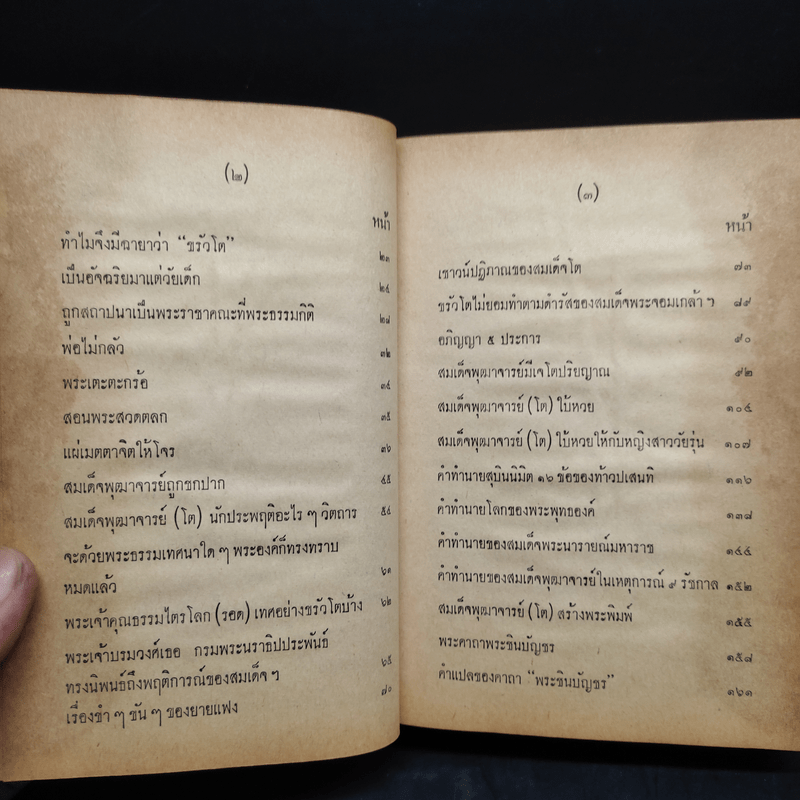 (๒)
หน้า
ทำไมจึงมีฉายาว่า "ขรัวโต" ๒๓
เป็นอัจฉริยมาแต่วัยเด็ก ๒๕
ถูกสถาปนาเป็นพระราชาคณะที่พระธรรมกิติ ๒๘
พ่อไม่กลัว ๓๒
พระเตะตะกร้อ ๓๔
สอนพระสวดตลก ๓๕
แผ่เมตตาจิตให้โจร ๓๖
สมเด็จพุฒาจารย์ถูกชกปาก ๔๕
สมเด็จพุฒาจารย์ (โต) นักประพฤติอะไร ๆ วิตถาร ๕๔
จะด้วยพระธรรมเทศนาใด ๆ พระองค์ก็ทรงทราบ
หมดแล้ว ๖๑
พระเจ้าคุณธรรมไตรโลก (รอด) เทศอย่างขรัวโตบ้าง ๖๒
พระเจ้าบรมวงศ์เธอ กรมพระนราธิปประพันธ์
ทรงนิพนธ์ถึงพฤติการณ์ของสมเด็จ ฯ ๖๕
เรื่องขำ ๆ ขัน ๆ ของยายแฟง ๗๐
(๓)
หน้า
เชาวน์ปฏิภาณของสมเด็จโต ๗๓
ขรัวโตไม่ยอมทำตามดำรัสของสมเด็จพระจอมเกล้า ฯ ๘๙
อภิญญา ๕ ประการ ๙๐
สมเด็จพุฒาจารย์มีเจโตปริยญาณ ๙๒
สมเด็จพุฒาจารย์ (โต) ใบ้หวย ๑๐๔
สมเด็จพุฒาจารย์ (โต) ใบ้หวยให้กับหญิงสาววัยรุ่น ๑๐๗
คำทำนายสุบินนิมิต ๑๖ ข้อของท้าวปเสนทิ ๑๑๖
คำทำนายโลกของพระพุทธองค์ ๑๓๘
คำทำนายของสมเด็จพระนารายณ์มหาราช ๑๔๔
คำทำนายของสมเด็จพุฒาจารย์ในเหตุการณ์ ๙ รัชกาล ๑๕๒
สมเด็จพุฒาจารย์ (โต) สร้างพระพิมพ์ ๑๕๕
พระคาถาพระชินบัญชร ๑๕๘
คำแปลของคาถา "พระชินบัญชร" ๑๖๑